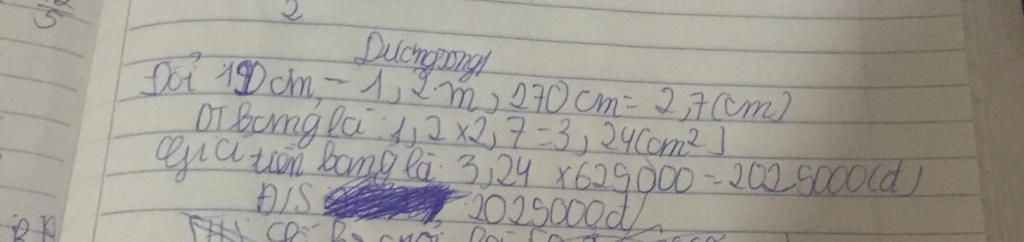 2
5
Dương
Đổi 120cm = 1,2 m, 270cm = 2,7(cm)
DT bảng là: 1,2 × 2,7 = 3,24(cm²)
Giá tiền bảng là: 3,24 × 625000 = 2025000(đ)
Đ/S 2025000đ